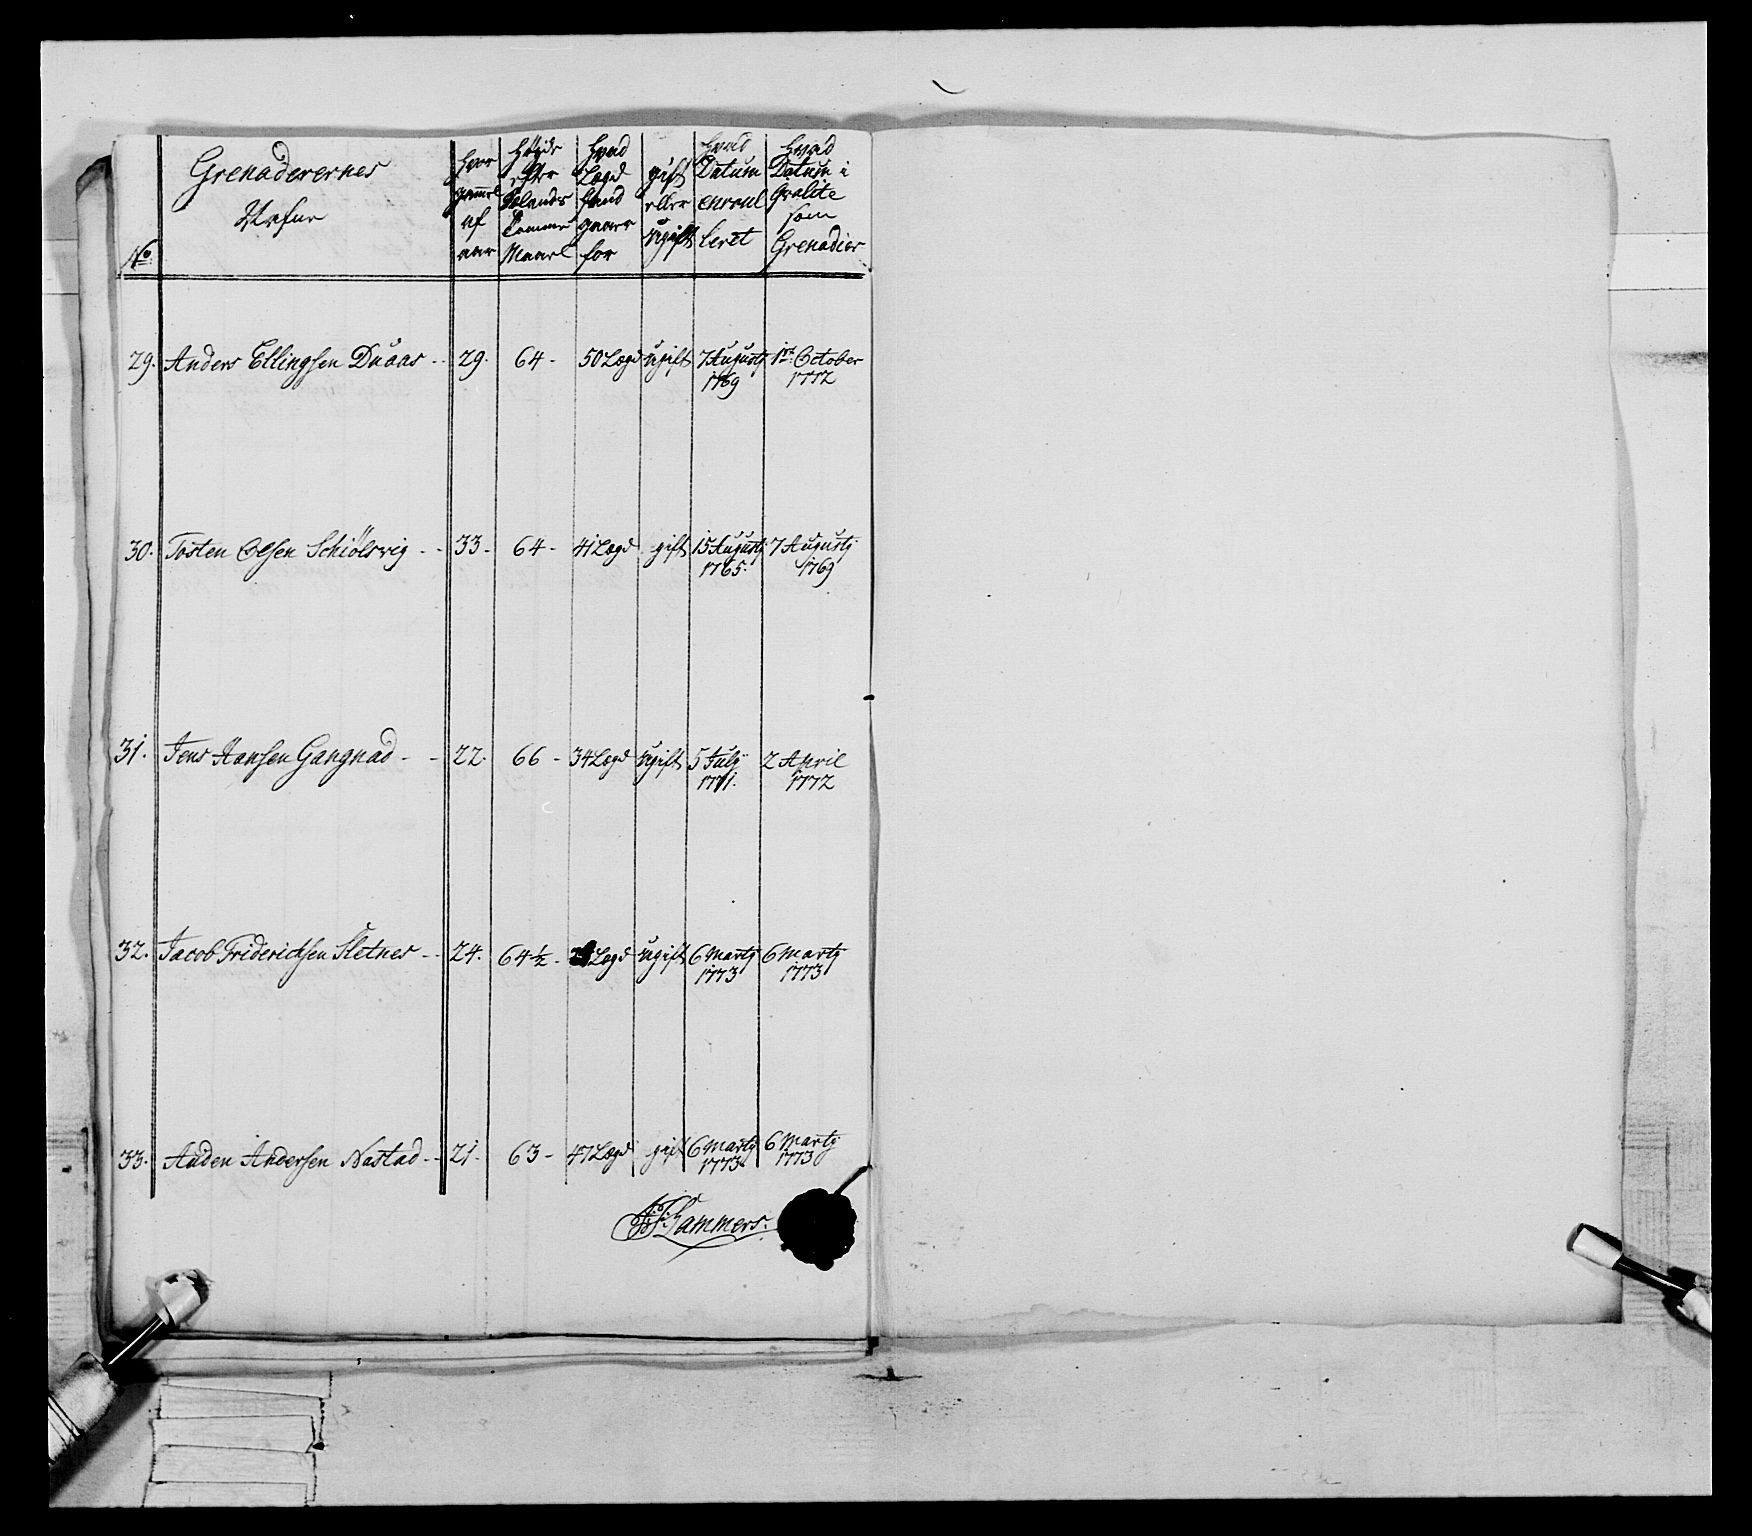 No Grenaderernes Nafne | hvor gammel af aar | Høyde efter Sælands Tomme Maael | hvad Lægd hand gaaer for | gift eller ugift | hvad Datum enroulleret | hvad Datum i Qvalite som Grenadier
29. Anders Ellingsen Duaas - - 29. 64 - 50 Lægd ugift 7 Augustj 1ste October
1769 1772
30. Tosten Olsen Schiölsvig - - 33 - 64 - 41 Lægd gift 15 Augustj 7 Augustj
1765. 1769
31. Jens Hansen Gangnad - - 22. 66 - 34 Lægd ugift 5 July 2 April
1771. 1772
32. Jacob Friderichsen Sletnes - - 24. 64 1/2 - Lægd ugift 6 Martj 6 Martj
1773 1773
33. Auden Andersen Nastad - - 21. 63 - 47 Lægd gift 6 Martj 6 Martj
1773 1773
Lammers.